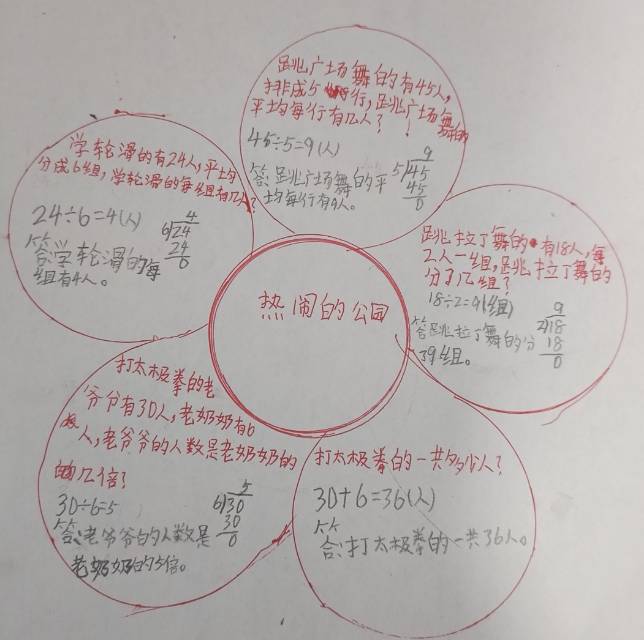 跳广场舞的有45人,
排成5行,跳广场舞的
平均每行有几人?
45÷5=9(人)
答:跳广场舞的平
均每行有9人。
9
5√45
45
0
学轮滑的有24人,平均
分成6组,学轮滑的每组有几人?
24÷6=4(人)
答:学轮滑的每
组有4人。
4
6√24
24
0
热闹的公园
跳拉丁舞的有18人,每
2人一组,跳拉丁舞的
分了几组?
18÷2=9(组)
答:跳拉丁舞的分
了9组。
9
2√18
18
0
打太极拳的老
爷爷有30人,老奶奶有6
人,老爷爷的人数是老奶奶的
的几倍?
30÷6=5
答:老爷爷的人数是
老奶奶的5倍。
5
6√30
30
0
打太极拳的一共多少人?
30+6=36(人)
答:打太极拳的一共36人。